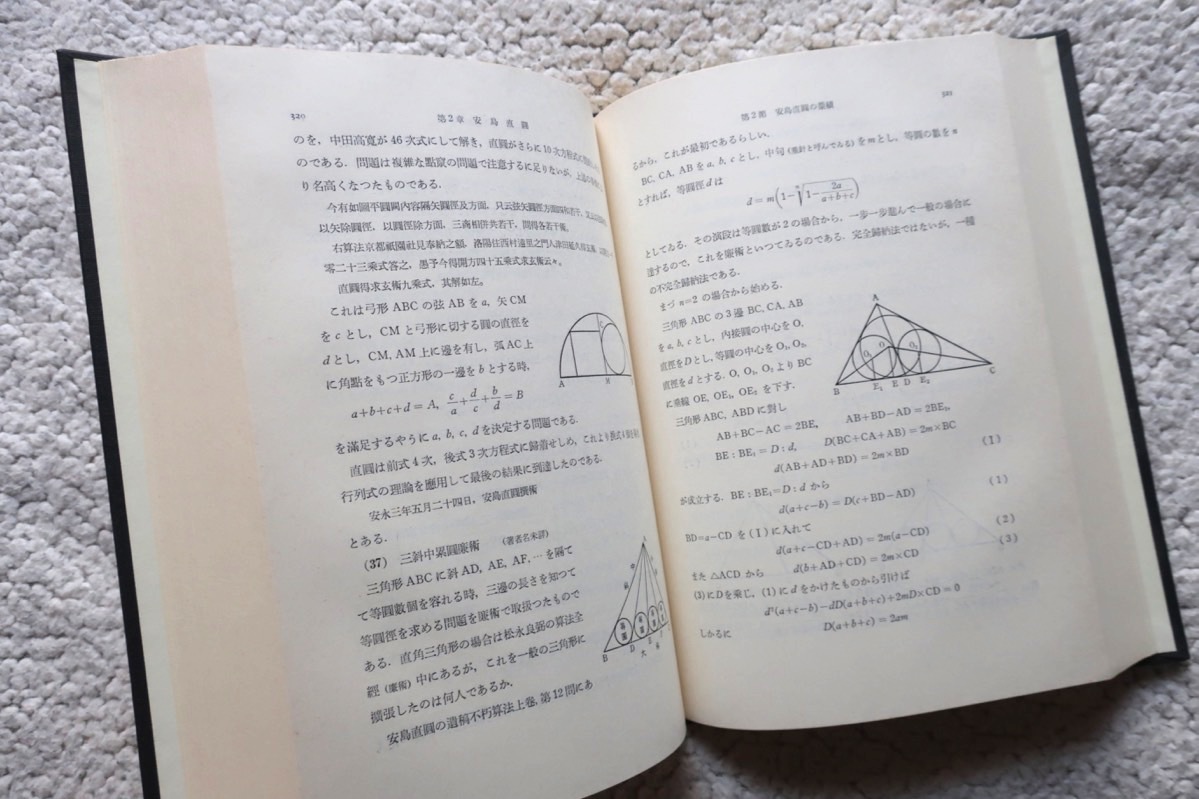 320
第2章 安島直圓
のを，中田高寬が46次式にして解き，直圓がさらに10次方程式に
のである．問題は複雜な點竄の問題で注意するに足りないが，上
り名高くなつたものである．
今有如圖平圓闕內容隔矢圓徑及方面，只云弦矢圓徑方面四和若干，
以矢除圓徑，以圓徑除方面，三商相併共若干，問得各若干術，
右算法京都祇園社見奉納之額，洛陽住西村遠里之門人津田
零二十三乘式答之，愚予今得開方四十五乘式求玄術云々。
直圓得求玄術九乘式，其解如左。
これは弓形 ABC の弦 AB を a，矢 CM
を c とし，CM と弓形に切する圓の直徑を
d とし，CM, AM 上に邊を有し，弧 AC 上
に角點をもつ正方形の一邊を b とする時，
a+b+c+d=A, c/a+d/c+b/d=B
C
A M
を滿足するやうに a, b, c, d を決定する問題である．
直圓は前式4次，後式3次方程式に歸着せしめ，これより
行列式の理論を應用して最後の結果に到達したのである．
安永三年五月二十四日，安島直圓撰術
とある．
(37) 三斜中累圓廉術 （著者名未詳）
三角形 ABC に斜 AD, AE, AF, … を隔て
て等圓數個を容れる時，三邊の長さを知つて
等圓徑を求める問題を廉術で取扱つたもので
ある．直角三角形の場合は松永良弼の算法全
經（廉術）中にあるが，これを一般の三角形に
擴張したのは何人であるか．
安島直圓の遺稿不朽算法上卷，第12問にあ
A
B D E F
大
第2節 安島直圓の業績
321
るから，これが最初であるらしい．
BC, CA, AB を a, b, c とし，中勾（應計と呼んでゐる）を m とし，等圓の數を n
とすれば，等圓徑 d は
d=m(1-ⁿ√(1-2a/(a+b+c)))
としてゐる．その演段は等圓數が2の場合から，一步一步進んで一般の場合に
達するので，これを廉術といつてゐるのである．完全歸納法ではないが，一種
の不完全歸納法である．
まづ n=2 の場合から始める．
三角形 ABC の3邊 BC, CA, AB
を a, b, c とし，內接圓の中心を O，
直徑を D とし，等圓の中心を O₁, O₂，
直徑を d とする．O, O₁, O₂ より BC
に垂線 OE, OE₁, OE₂ を下す．
A
O₁ O O₂
B E₁ E D E₂ C
三角形 ABC, ABD に對し
AB+BC-AC=2BE, AB+BD-AD=2BE₁,
BE:BE₁=D:d, D(BC+CA+AB)=2m×BC
d(AB+AD+BD)=2m×BD (I)
が成立する．BE:BE₁=D:d から
d(a+c-b)=D(c+BD-AD) (1)
BD=a-CD を (I) に入れて
d(a+c-CD+AD)=2m(a-CD) (2)
また △ACD から d(b+AD+CD)=2m×CD (3)
(3)に D を乘じ，(1)に d をかけたものから引けば
d²(a+c-b)-dD(a+b+c)+2mD×CD=0
しかるに D(a+b+c)=2am